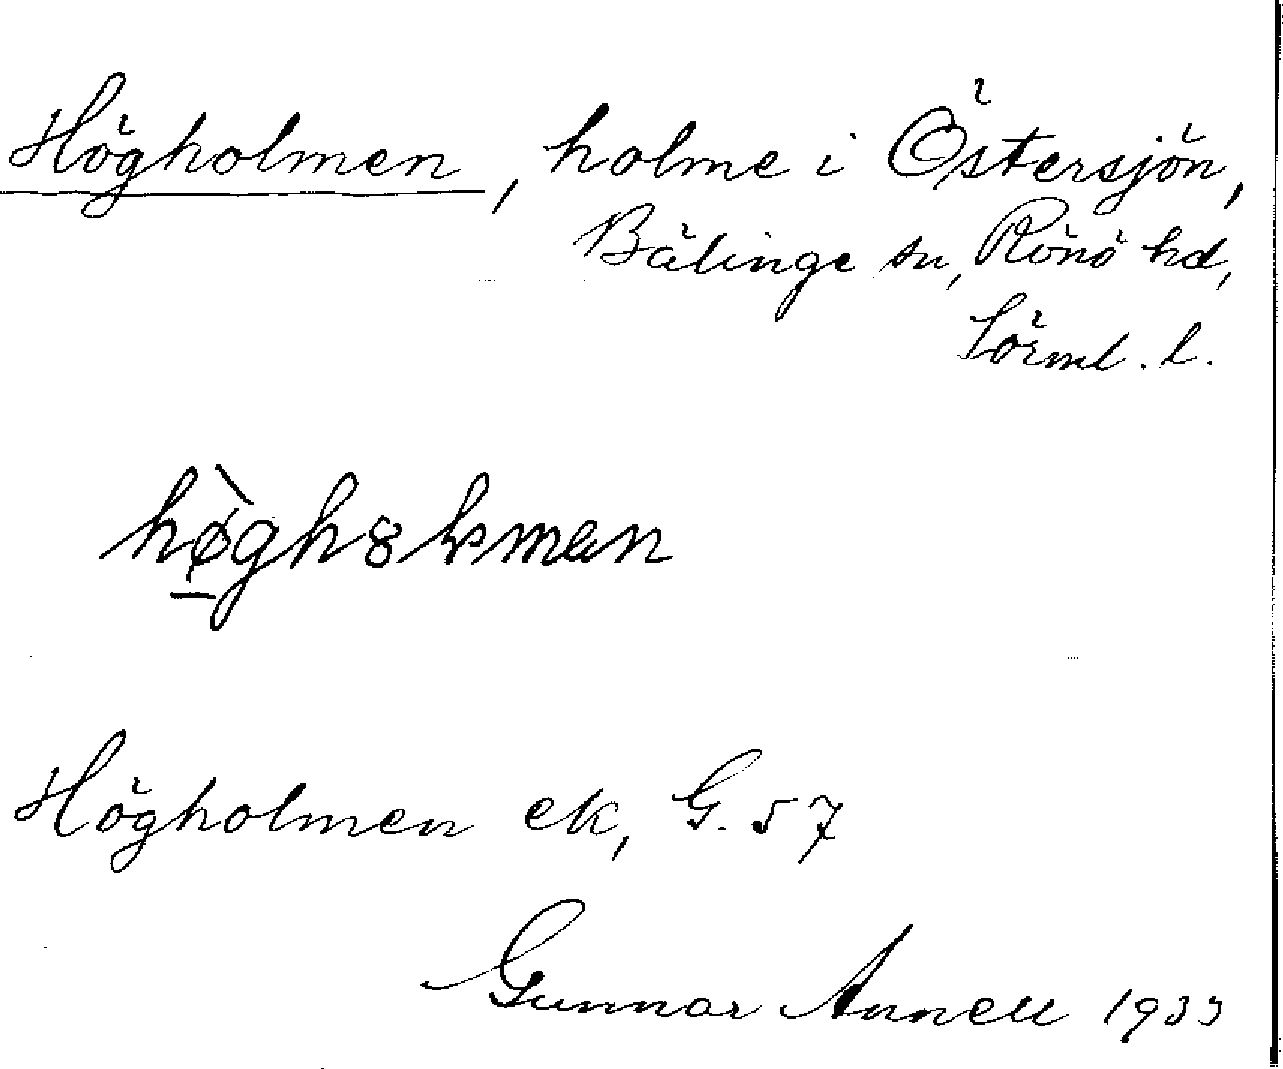 Högholmen, holme i Östersjön,
Bälinge sn, Rönö hd,
Sörml. l.
Högholmen ek, G. 57
Gunnar Annell